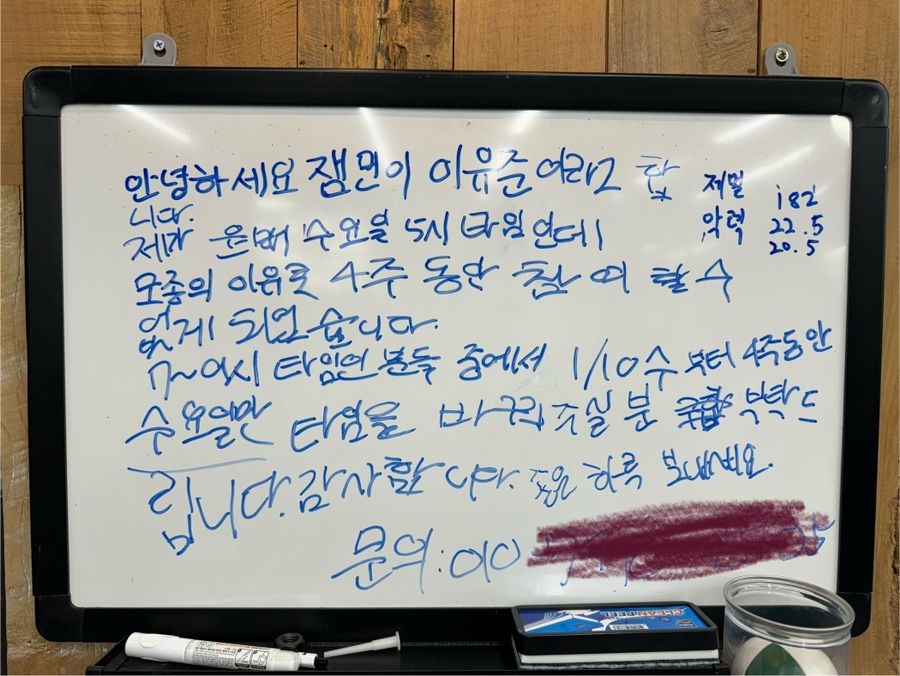 안녕하세요 잼민이 이유준이라고 합
니다.
제가 원래 수요일 5시 타임인데
모종의 이유로 4주 동안 참여 할 수
없게 되었습니다.
7~9시 타임인 분들 중에서 1/10수 부터 4주동안
수요일만 타임을 바꿔주실 분 부탁드
립니다. 감사합니다. 좋은 하루 보내세요.
문의: 010
제멀 182
악력 22.5
20.5
CLEAN